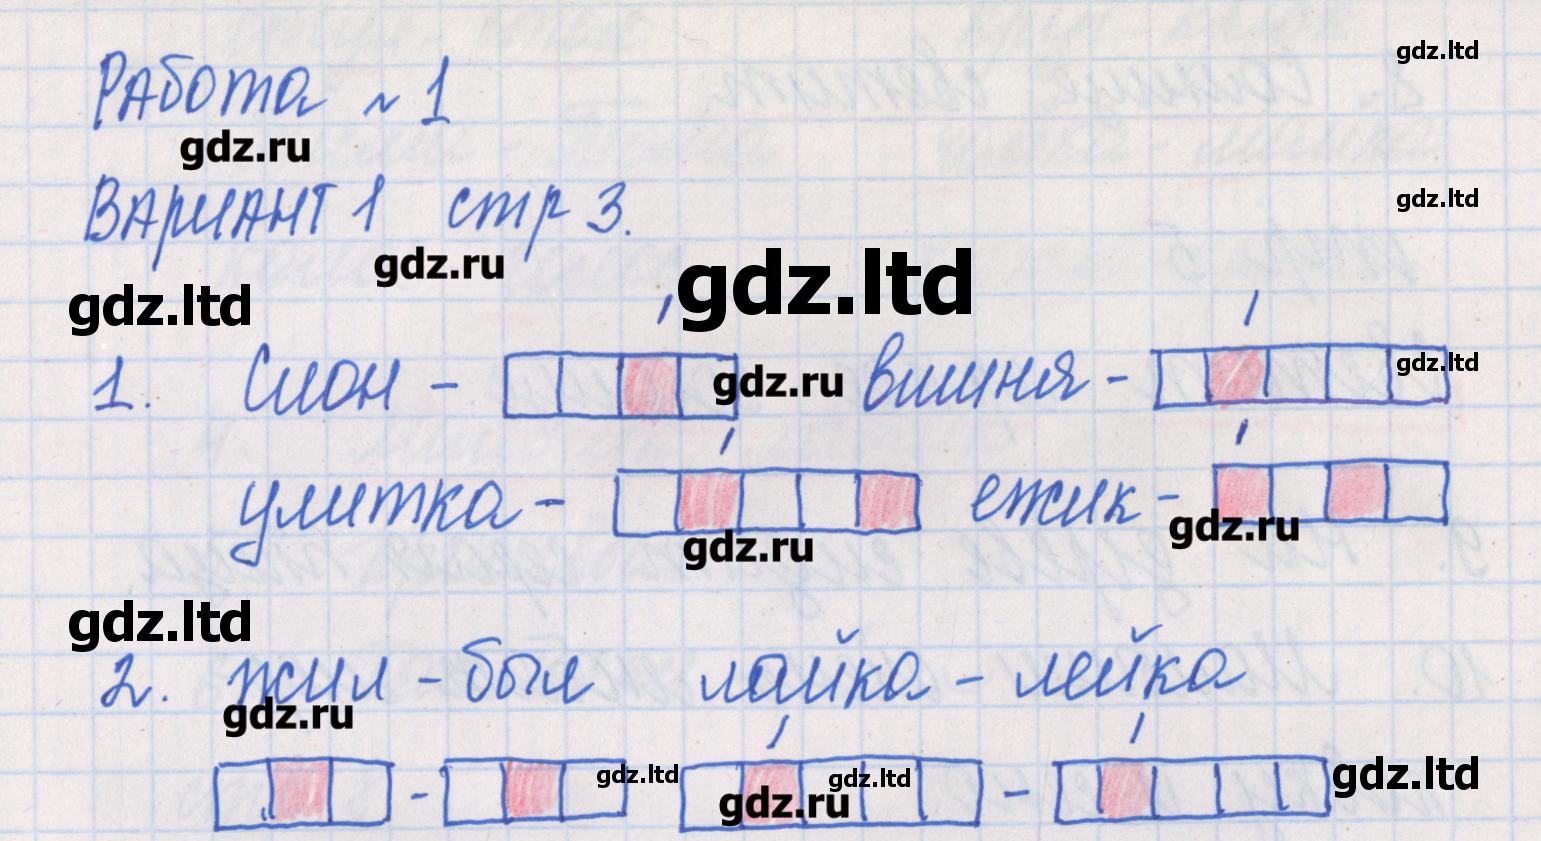 gdz.ltd
Работа №1
gdz.ru
Вариант 1 стр 3.
gdz.ltd
gdz.ru
gdz.ltd
gdz.ltd
1. Слон - gdz.ru вишня - gdz.ltd
улитка - ежик -
gdz.ru gdz.ru
gdz.ltd
2. жил - был лайка - лейка
gdz.ru
- gdz.ltd gdz.ltd - gdz.ltd
gdz.ru